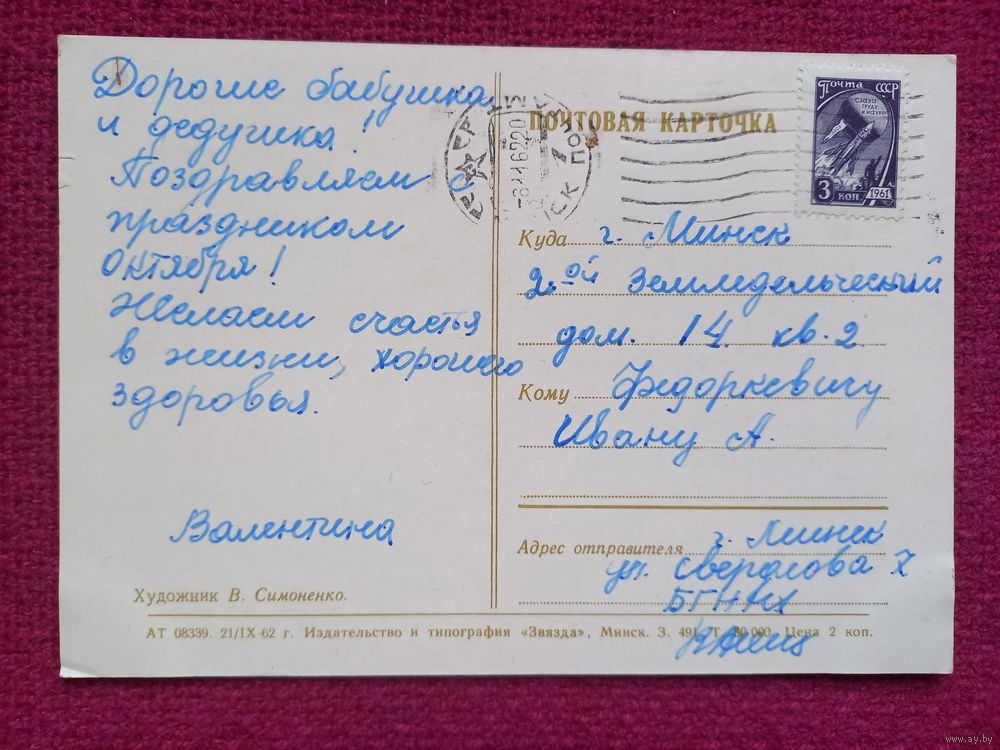 Дорогие бабушка
и дедушка!
Поздравляем с
праздником
Октября!
Желаем счастья
в жизни, хорошего
здоровья.
Валентина
Художник В. Симоненко.
ПОЧТОВАЯ КАРТОЧКА
ПОЧТА СССР
СЛАВА
ТРУДУ
И НАУКЕ!
3 КОП
1961
Куда г. Минск
2-ой Земледельческий
дом. 14 кв. 2
Кому Федоркевичу
Ивану А.
Адрес отправителя г. Минск
ул. Свердлова 7
АТ 08339. 21/IX-62 г. Издательство и типография «Звязда», Минск. З. 491. Т. 80 000. Цена 2 коп.
www.ay.by